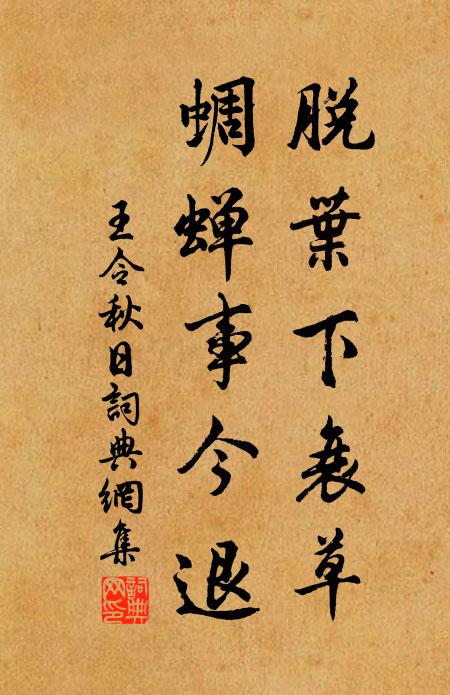 脱葉下衰草
蜩蝉事今退
王令秋日詞典網集
詞典网印